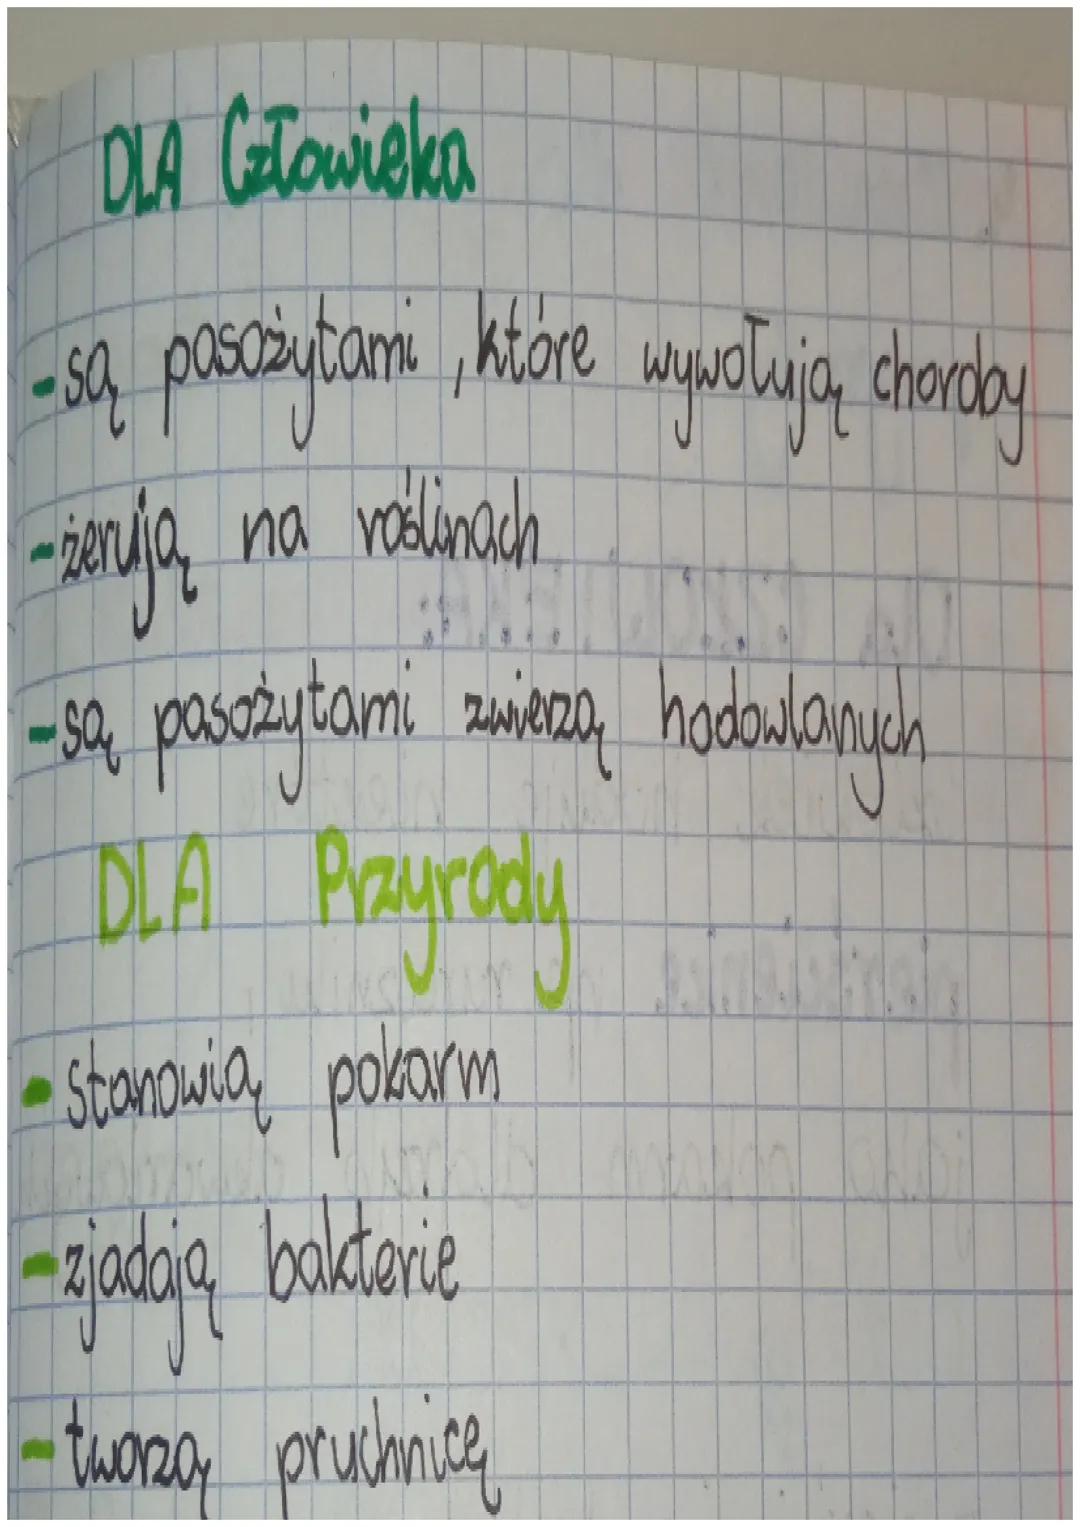 DLA Człowieka
- są pasożytami, które wywołują choroby
- żerują na roślinach
- są pasożytami zwierzą hodowlanych
DLA Przyrody
- stanowią pokarm
- zjadają bakterie
- tworzą pruchnicę